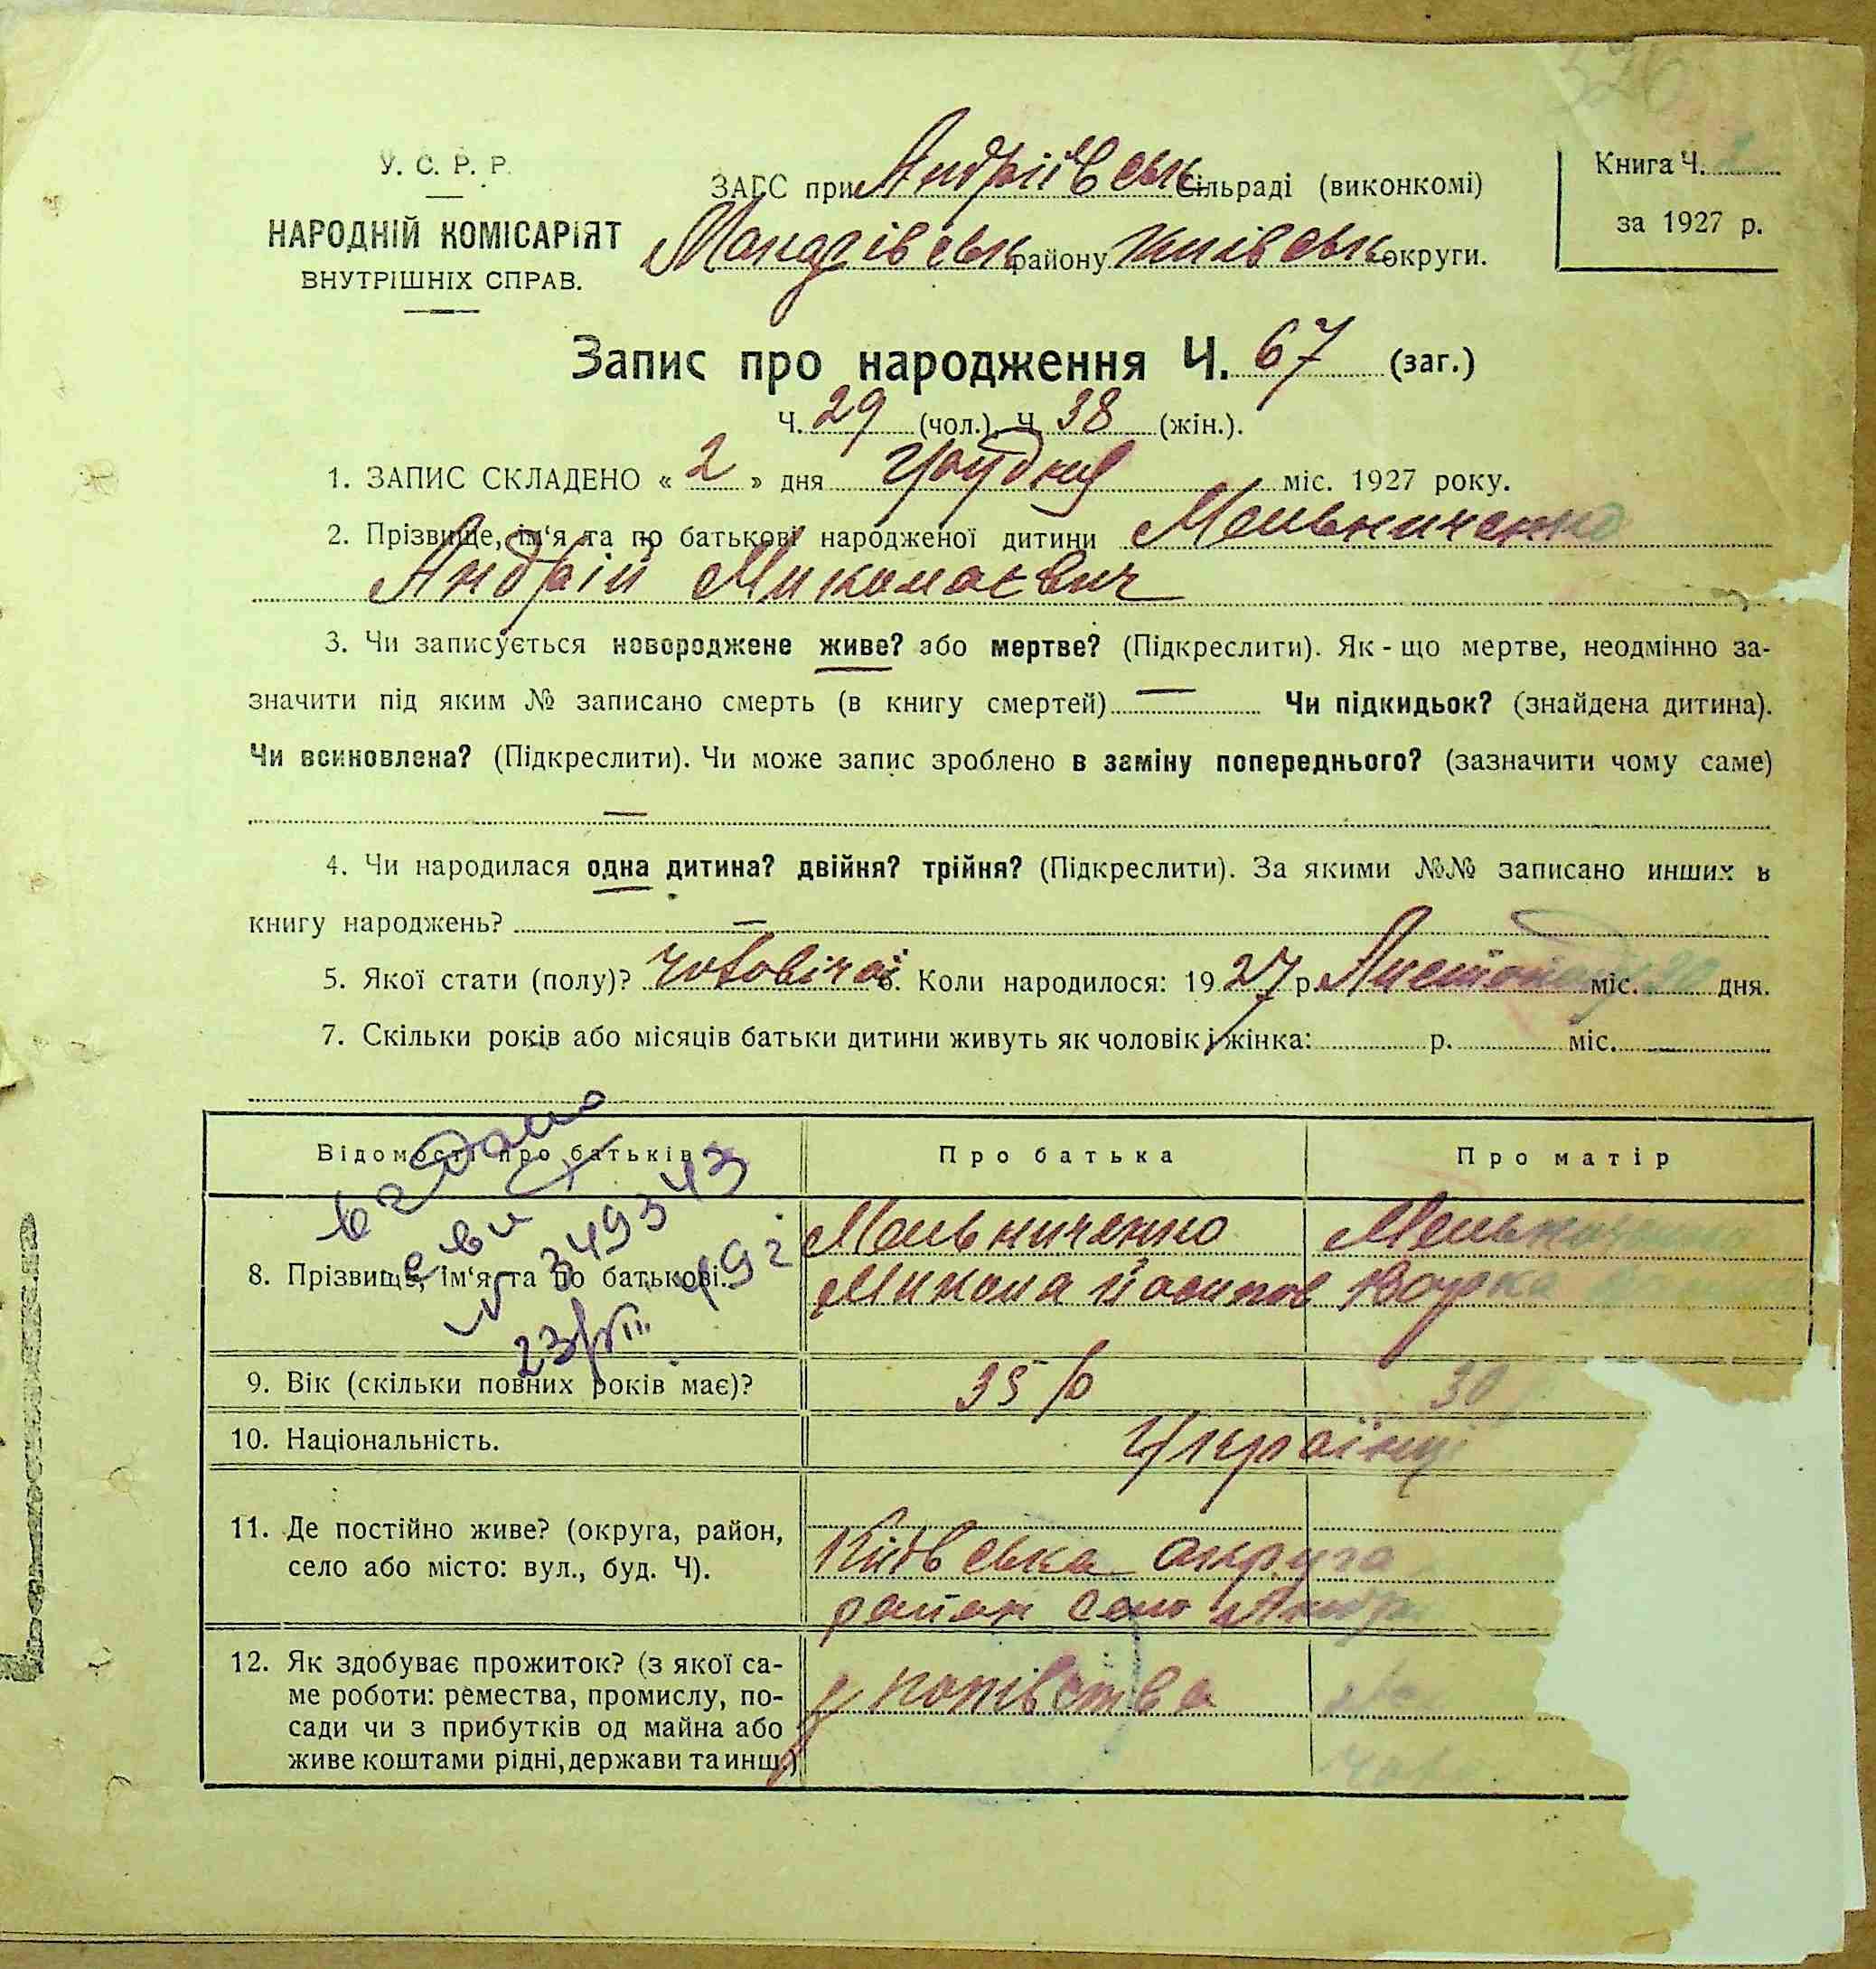 326
У. С. Р. Р.
НАРОДНІЙ КОМІСАРІЯТ
ВНУТРІШНІХ СПРАВ.
ЗАГС при Андріївськ Сільраді (виконкомі)
району Київськ округи.
Книга Ч.
за 1927 р.
Запис про народження Ч. 67 (заг.)
Ч. 29 (чол.), Ч. 38 (жін.).
1. ЗАПИС СКЛАДЕНО « 2 » дня грудня міс. 1927 року.
2. Прізвище, ім'я та по батькові народженої дитини Мельниченко
Андрій Миколаєвич
3. Чи записується новороджене живе? або мертве? (Підкреслити). Як-що мертве, неодмінно за-
значити під яким № записано смерть (в книгу смертей) — Чи підкидьок? (знайдена дитина).
Чи всиновлена? (Підкреслити). Чи може запис зроблено в заміну попереднього? (зазначити чому саме)
—
4. Чи народилася одна дитина? двійня? трійня? (Підкреслити). За якими №№ записано инших в
книгу народжень? —
5. Якої стати (полу)? чоловічої 6. Коли народилося: 1927 р. Листопаду міс. 30 дня.
7. Скільки років або місяців батьки дитини живуть як чоловік і жінка: р. міс.
Відомості про батьків Про батька Про матір
8. Прізвище, ім'я та по батькові. Мельниченко
Микола Йосипов
№ 349343
9. Вік (скільки повних років має)? 35 р 30
10. Національність. Українці
11. Де постійно живе? (округа, район,
село або місто: вул., буд. Ч).
Київська округа
район село Андр
12. Як здобуває прожиток? (з якої са-
ме роботи: ремества, промислу, по-
сади чи з прибутків од майна або
живе коштами рідні, держави та инш.)